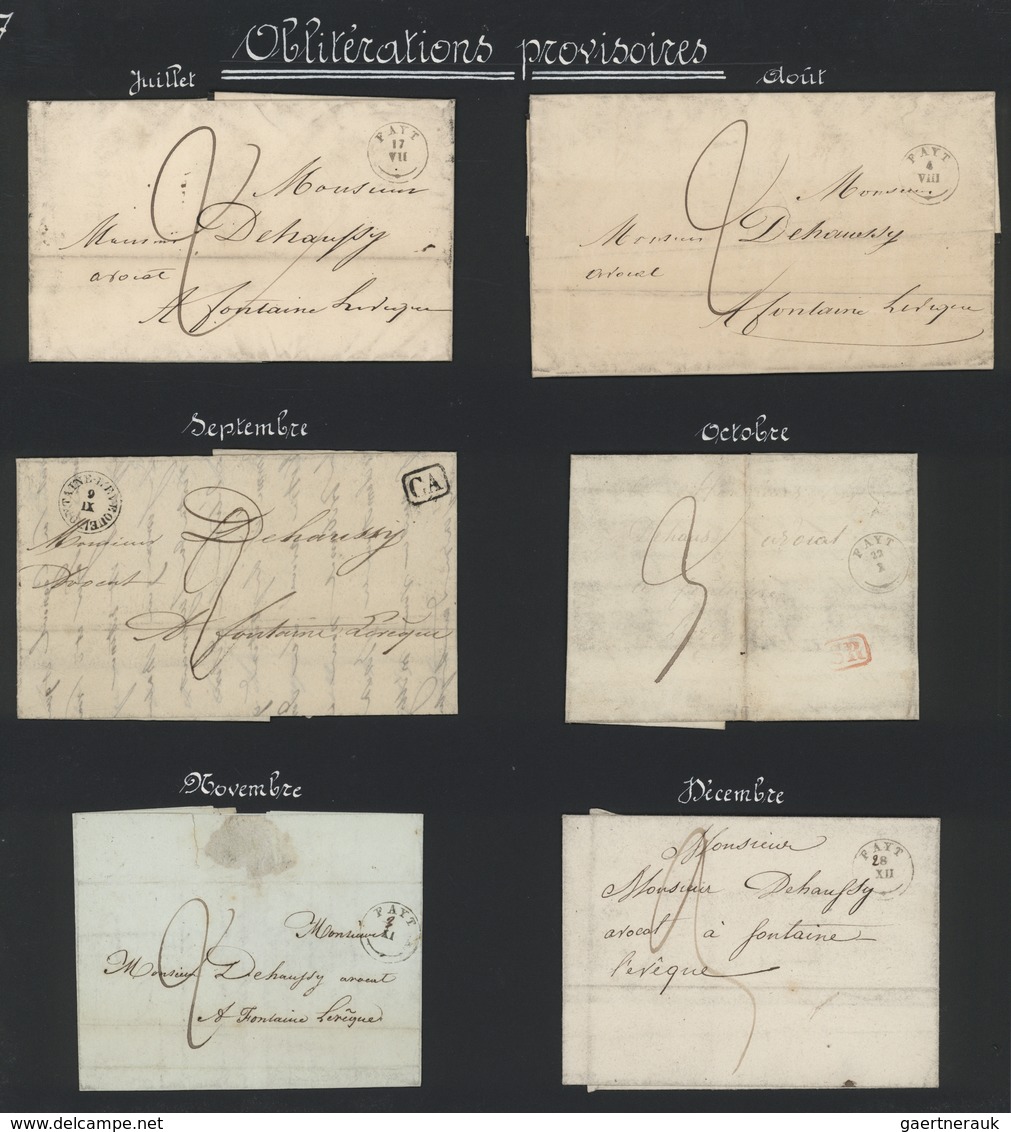 7
Oblitérations provisoires
Juillet
Août
FAYT
17
VII
Monsieur
Monsieur Dehaussy
avocat
A fontaine Levêque
FAYT
4
VIII
Monsieur
Monsieur Dehaussy
avocat
A fontaine Levêque
Septembre
Octobre
FONTAINE-L'EVEQUE
9
IX
CA
Dehaussy
Monsieur
Avocat
A fontaine Levêque
avocat
FAYT
22
X
SR
Novembre
Décembre
FAYT
2
XI
Monsieur
Monsieur Dehaussy avocat
A Fontaine Levêque
FAYT
28
XII
Monsieur
Monsieur Dehaussy
avocat à fontaine
l'evêque
gaertnerauk / www.delcampe.net